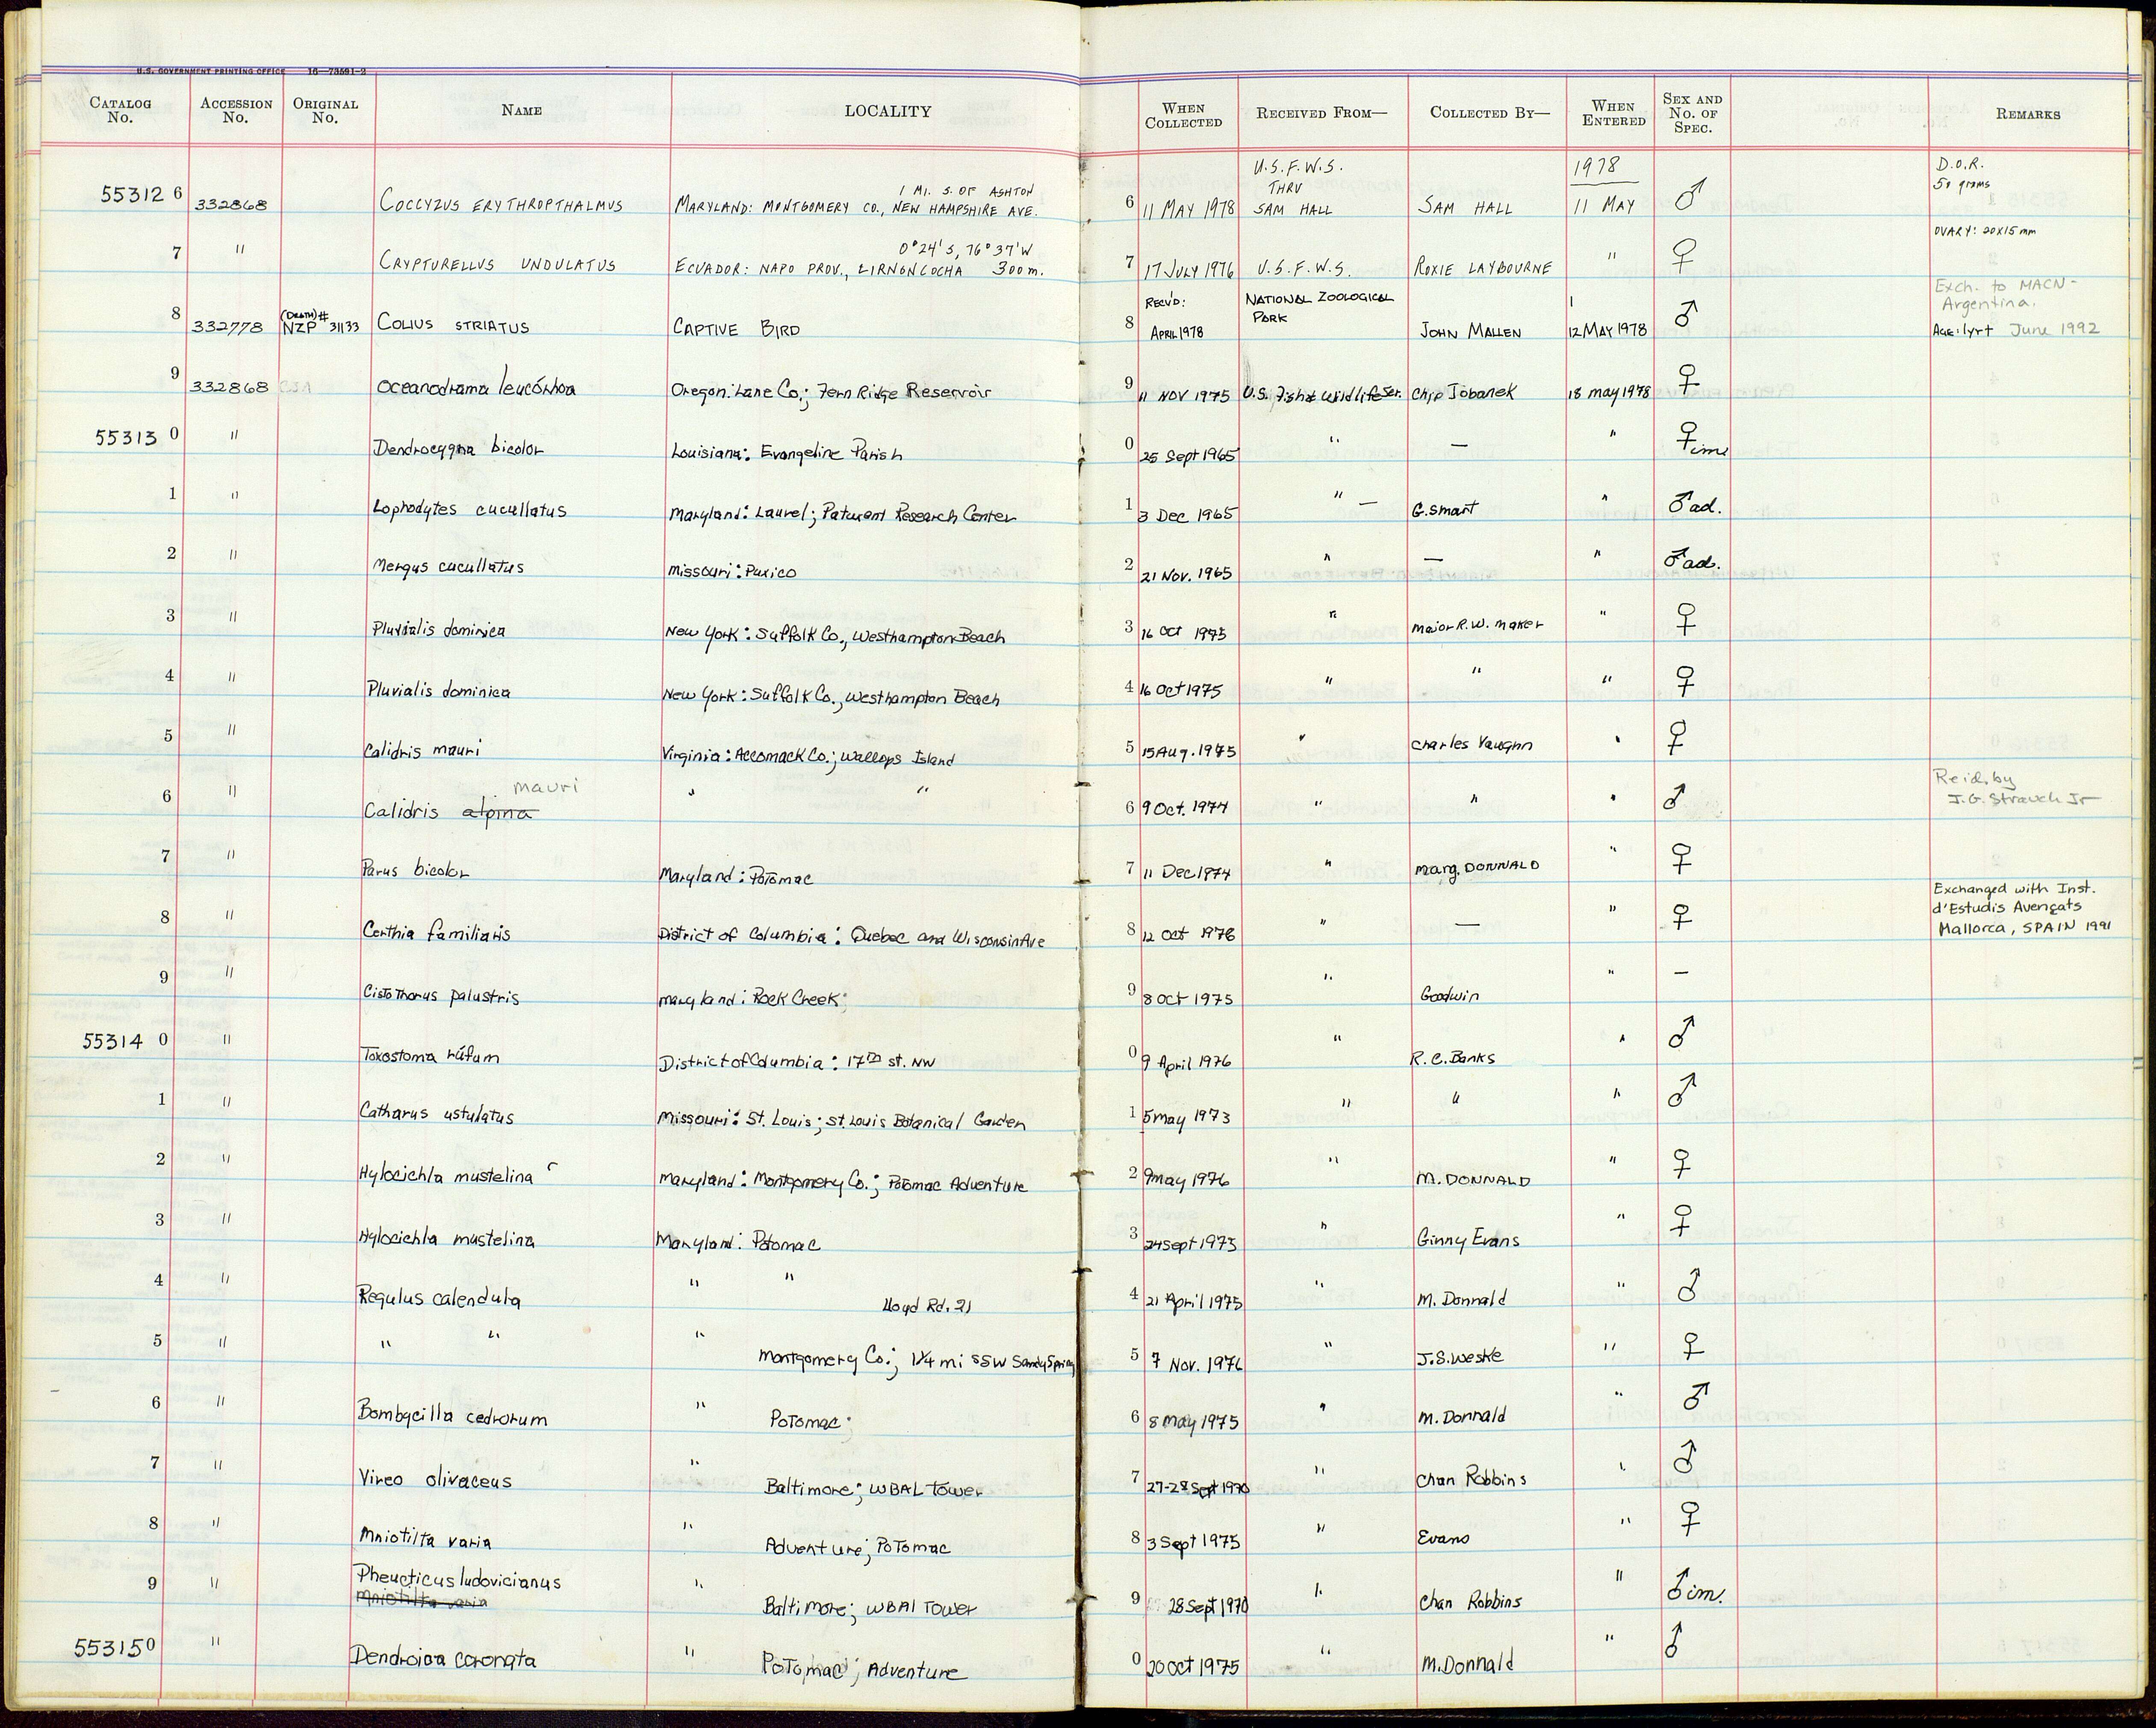 U.S. GOVERNMENT PRINTING OFFICE 16—73591-2
CATALOG No. ACCESSION No. ORIGINAL No. NAME LOCALITY WHEN COLLECTED RECEIVED FROM— COLLECTED BY— WHEN ENTERED SEX AND No. OF SPEC. REMARKS
U.S.F.W.S. 1978 D.O.R.
1 MI. S. OF ASHTON THRU 50 grams
55312 6 332868 COCCYZUS ERYTHROPTHALMUS MARYLAND: MONTGOMERY CO., NEW HAMPSHIRE AVE. 6 11 MAY 1978 SAM HALL SAM HALL 11 MAY ♂
0°24'S, 76°37'W OVARY: 20X15mm
7 " CRYPTURELLUS UNDULATUS ECUADOR: NAPO PROV., LIRNONCOCHA 300m. 7 17 JULY 1976 U.S.F.W.S. ROXIE LAYBOURNE " ♀
(DEATH)# REC'D: NATIONAL ZOOLOGICAL PARK Exch. to MACN- Argentina.
8 332778 NZP 31133 COLIUS STRIATUS CAPTIVE BIRD 8 APRIL 1978 JOHN MALLEN 12 MAY 1978 ♂ AGE: 1yr+ June 1992
9 332868 Oceanodrama leucórhoa Oregon: Lane Co.; Fern Ridge Reservoir 9 11 NOV 1975 U.S. Fish & Wildlife Ser. Chip Jobanek 18 May 1978 ♀
55313 0 " Dendrocygna bicolor Louisiana: Evangeline Parish 0 25 Sept 1965 " — " ♀ im
1 " Lophodytes cucullatus Maryland: Laurel; Patuxent Research Center 1 3 Dec 1965 " — G. Smart " ♂ ad.
2 " Mergus cucullatus Missouri: Puxico 2 21 Nov. 1965 " — " ♂ ad.
3 " Pluvialis dominica New York: Suffolk Co., Westhampton Beach 3 16 Oct 1975 " Major R.W. Maker " ♀
4 " Pluvialis dominica New York: Suffolk Co., Westhampton Beach 4 16 Oct 1975 " " " ♀
5 " Calidris mauri Virginia: Accomack Co.; Wallops Island 5 15 Aug. 1975 " Charles Vaughn " ♀
mauri Reid. by
6 " Calidris alpina " " 6 9 Oct. 1974 " " " ♂ J.G. Strauch Jr
7 " Parus bicolor Maryland: Potomac 7 11 Dec 1974 " Marg. DONNALD " ♀
Exchanged with Inst.
d'Estudis Avençats
8 " Certhia familiaris District of Columbia: Quebec and Wisconsin Ave 8 12 Oct 1976 " — " ♀ Mallorca, SPAIN 1991
9 " Cistothorus palustris Maryland: Rock Creek 9 8 Oct 1975 " Goodwin " —
55314 0 " Toxostoma rufum District of Columbia: 17th st. NW 0 9 April 1976 " R.C. Banks " ♂
1 " Catharus ustulatus Missouri: St. Louis; St. Louis Botanical Garden 1 5 May 1973 " " " ♂
2 " Hylocichla mustelina Maryland: Montgomery Co.; Potomac Adventure 2 9 May 1976 " M. DONNALD " ♀
3 " Hylocichla mustelina Maryland: Potomac 3 24 Sept 1975 " Ginny Evans " ♀
4 " Regulus calendula " " Lloyd Rd. 21 4 21 April 1975 " M. Donnald " ♂
5 " " " " Montgomery Co.; 1¼ mi SSW Sandy Spring 5 7 Nov. 1976 " J.S. Weske " ♀
6 " Bombycilla cedrorum " Potomac 6 8 May 1975 " M. Donnald " ♂
7 " Vireo olivaceus " Baltimore; WBAL Tower 7 27-28 Sept 1970 " Chan Robbins " ♂
8 " Mniotilta varia " Adventure; Potomac 8 3 Sept 1975 " Evans " ♀
Pheucticus ludovicianus
9 " Mniotilta varia " Baltimore; WBAl Tower 9 28 Sept 1970 " Chan Robbins " ♂ im.
55315 0 " Dendroica coronata " Potomac; Adventure 0 20 Oct 1975 " M. Donnald " ♂